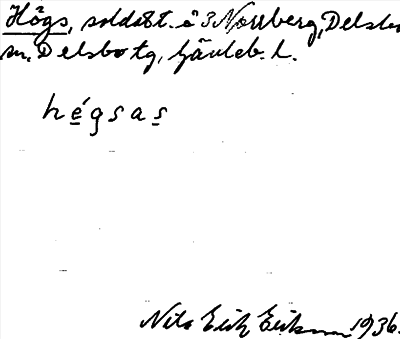 Högs, soldatt. å 3 Norrberg, Delsbo
sn. Delsbo tg, Gävleb. l.
hégsas
Nils Erik Eriksson 1936.